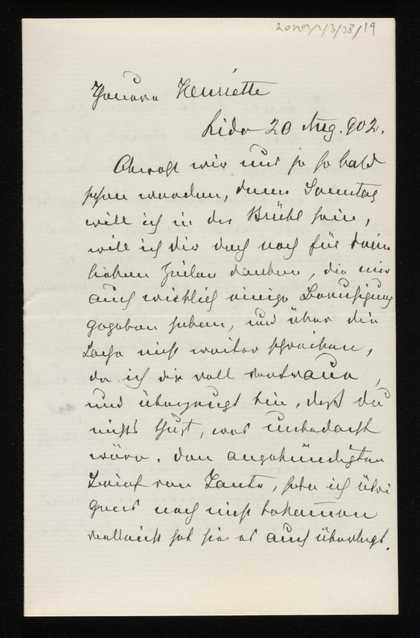 Theure Henriette
Lido 20 Aug. 902.
Obwohl wir uns ja so bald
sehen werden, denn Sonntag
will ich in der Brühl sein,
will ich dir doch noch für deine
lieben Zeilen danken, die mir
auch wirklich einige Beruhigung
gegeben haben, und über die
Sache nicht weiter schreiben,
da ich dir voll vertraue,
und überzeugt bin, daß du
nichts thust, was unbedacht
wäre. Den angekündigten
Brief von Xante, habe ich übri
gens noch nicht bekommen
vielleicht hat sie es auch überlegt.